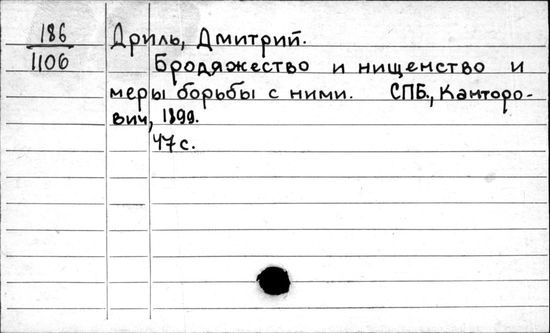 186
1106
Дриль, Дмитрий.
Бродяжество и нищенство и
меры борьбы с ними. СПБ., Канторо-
вич, 1899.
47 с.